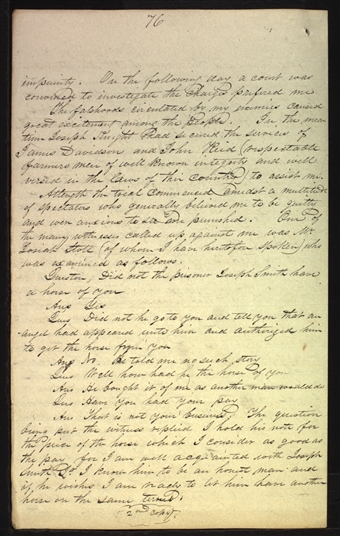 76
impunity. On the following day a court was
convined to investigate the charges prefered me
The falsehoods circulated by my enemies caused
great excitement among the people. In the mean
time Joseph Knight had secured the services of
James Davidson and John Reid (respectable
farmers men of well known integrity and well
versed in the laws of this country) to assist me.
Atlength the trial commenced amidst a multitude
of spectators who generally believed me to be guilty
and were anxious to see me punished. One of
the many witnesses called up against me was Mr.
Josiah Stole (of whom I have heretofor spoken) who
was examined as follows.
Question Did not the prisoner Joseph Smith have
a horse of you
Ans Yes
Ques Did not he go to you and tell you that an
angel had appeared unto him and authorized him
to get the horse from you
Ans No he told me no such story
Ques Well how had he the horse of you
Ans He bought it of me as another man would do
Ques Have you had your pay
Ans That is not your business. The question
being put the witness replied I hold his note for
the price of the horse which I consider as good as
the pay for I am well acquainted with Joseph
Smith Jr I know him to be an honest man and
if he wishes I am ready to let him have another
horse on the same terms.
(2nd copy).